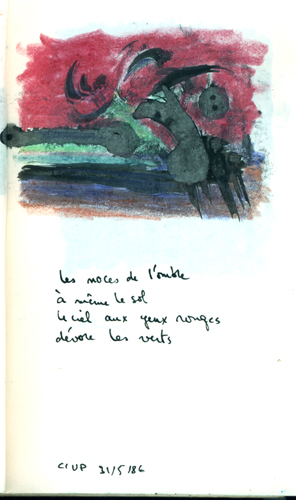 les noces de l'ombre
à même le sol
le ciel aux yeux rouges
dévore les verts
CIUP 31/5/86